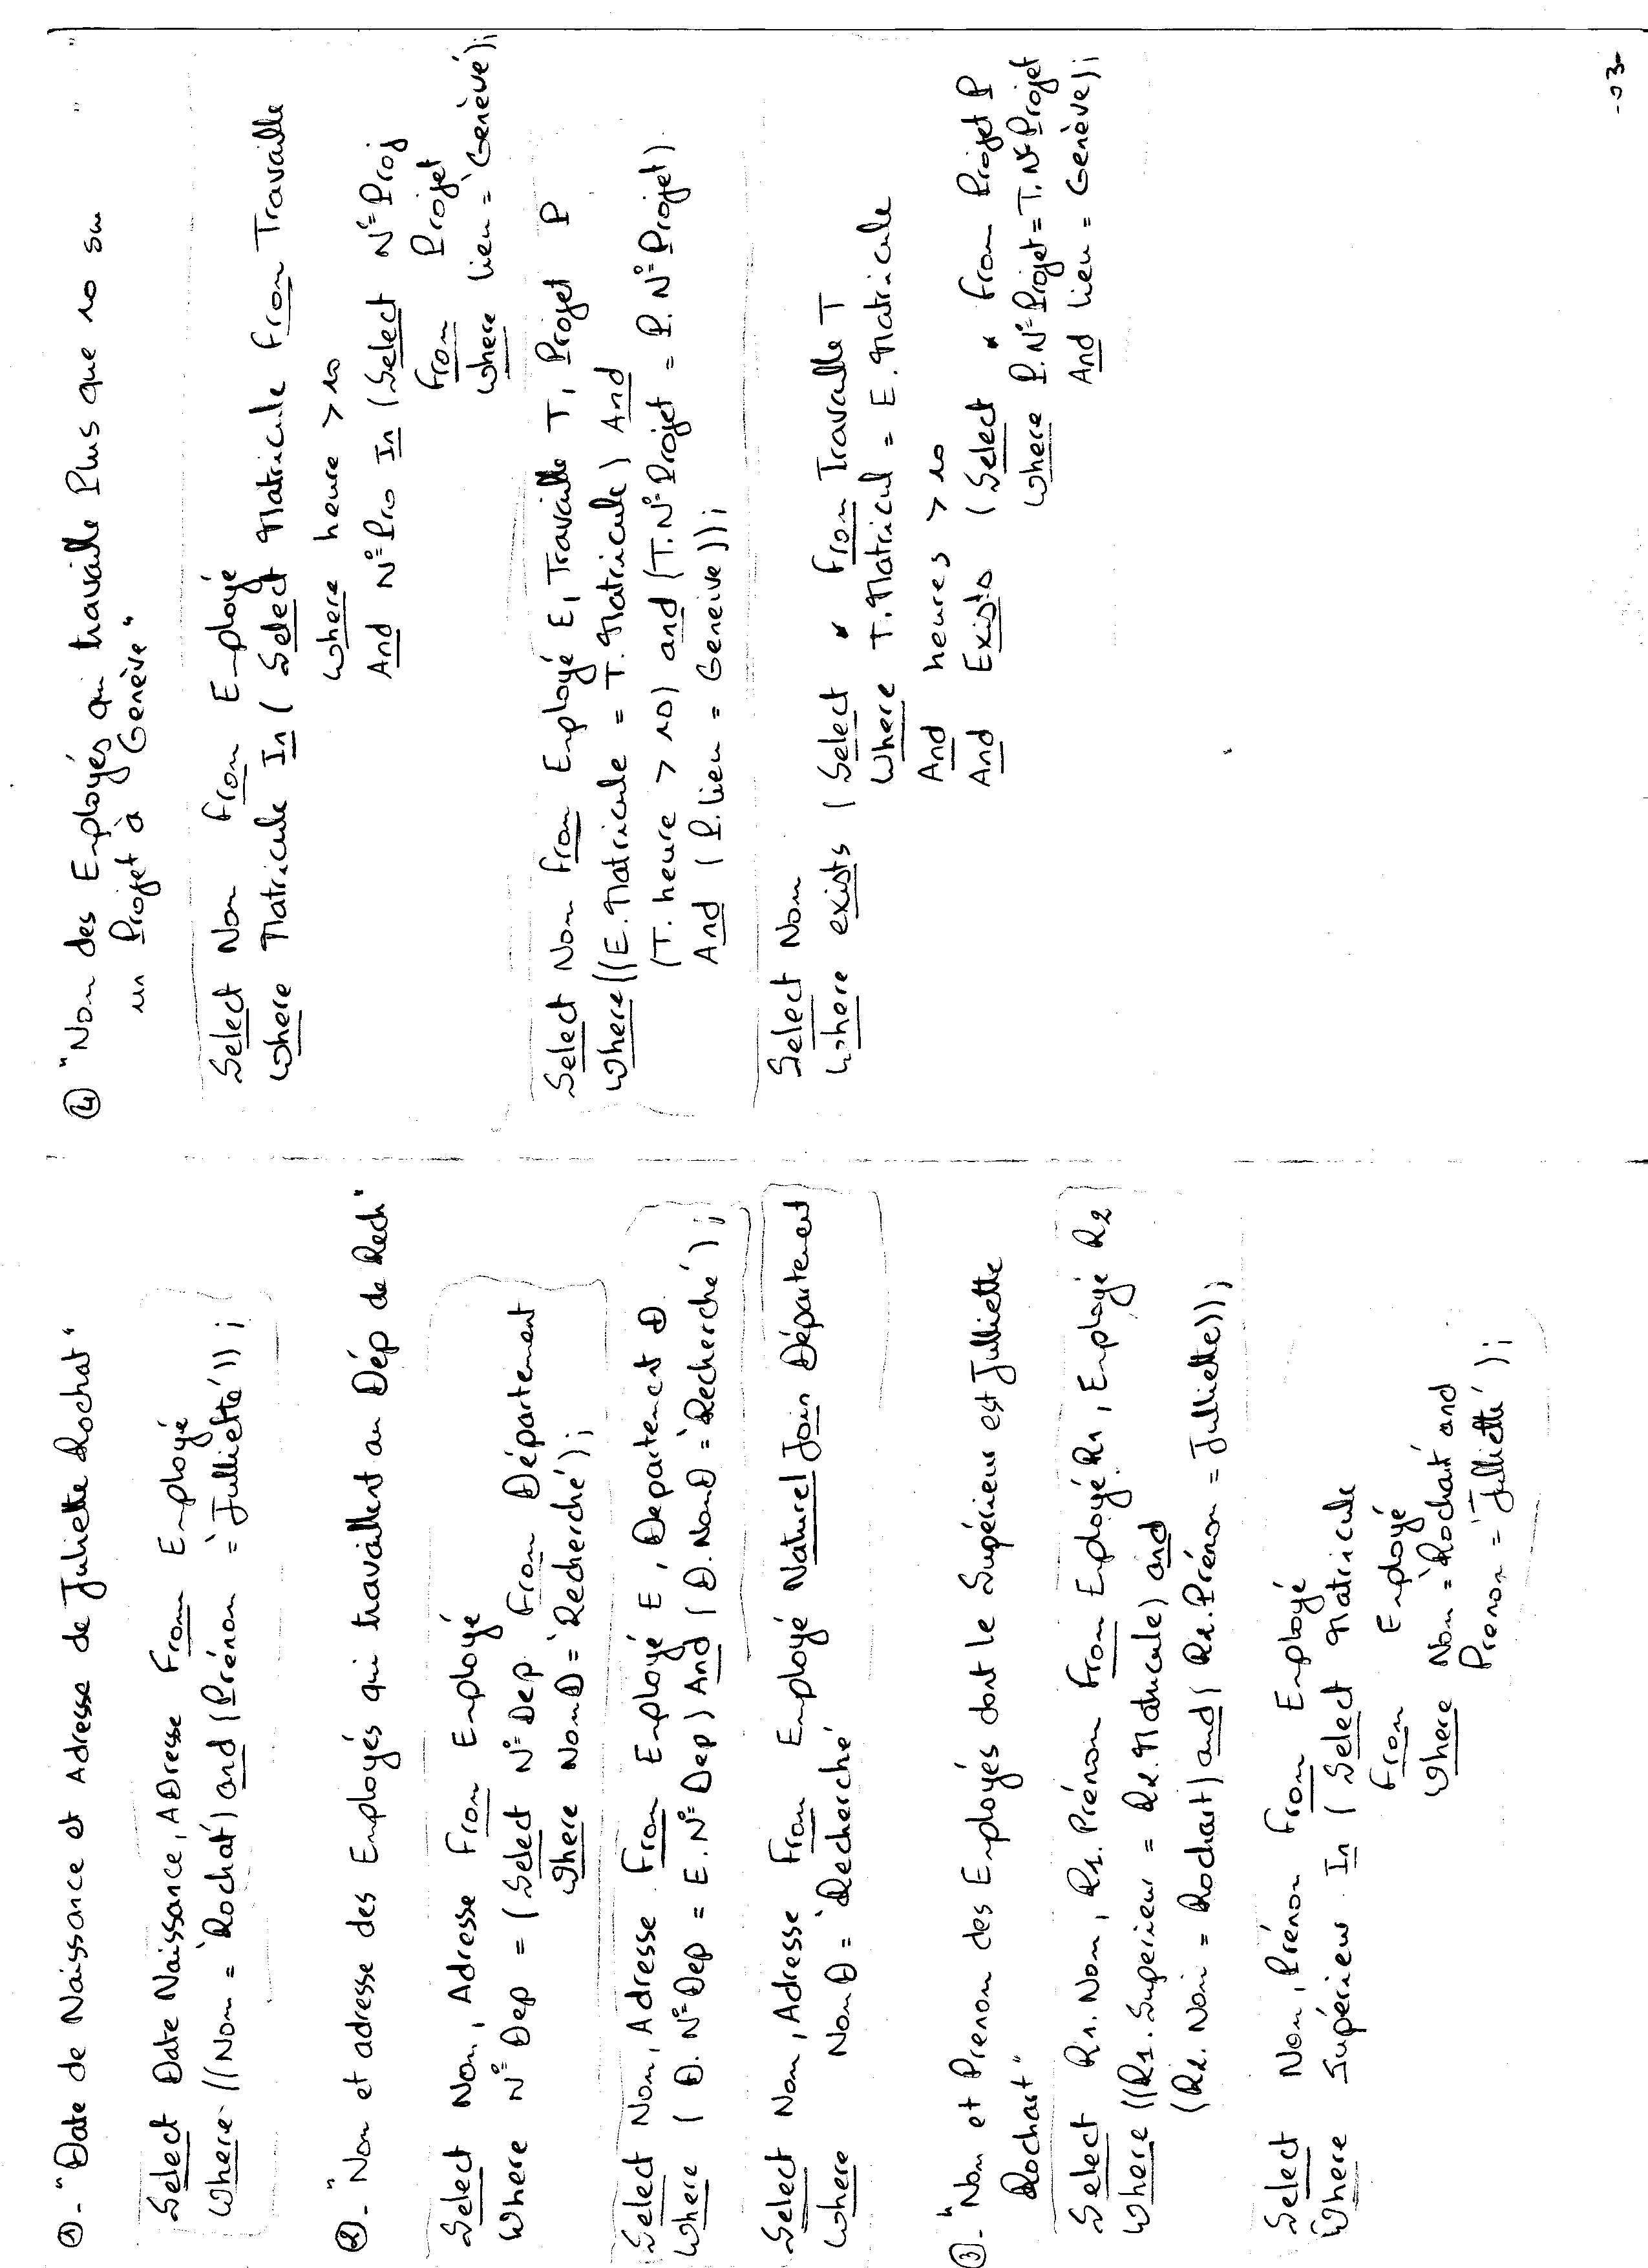 ①- "Date de Naissance et Adresse de Juliette Rochat"
Select Date Naissance, ADresse From Employé
Where ((Nom = 'Rochat') and (Prénom = 'Julliette')) ;
②- "Nom et adresse des Employés qui travaillent au Dép de Rech"
Select Nom, Adresse From Employé
Where N° Dep = (Select N° Dep From Département
Where NomD = 'Recherché') ;
Select Nom, Adresse From Employé E, Departement D
Where ( D. N° Dep = E. N° Dep ) And ( D. NomD = 'Recherché' ) ;
Select Nom, Adresse From Employé Naturel Join Département
Where NomD = 'Recherché'
③- "Nom et Prenom des Employés dont le Supérieur est Julliette
Rochart"
Select R1. Nom, R1. Prénom From Employé R1, Employé R2
Where ((R1. Superieur = R2. Matricule) and
(R2. Nom = Rochart) and ( R2. Prénom = Julliette)) ;
Select Nom, Prénom From Employé
Where Supérieur In ( Select Matricule
From Employé
Where Nom = 'Rochart' and
Prenom = 'Julliette' ) ;
④ "Nom des Employés qui travaille Plus que 10 sur
un Projet à Genève"
Select Nom From Employé
Where Matricule In ( Select Matricule From Travaille
Where heure > 10
And N° Pro In (Select N° Proj
From Projet
Where lieu = 'Genève') ;
Select Nom From Employé E, Travaille T, Projet P
Where ((E. Matricule = T. Matricule ) And
(T. heure > 10) and (T. N° Projet = P. N° Projet)
And ( P. lieu = Geneive )) ;
Select Nom
Where exists ( Select * From Travaille T
Where T. Matricul = E. Matricule
And heures > 10
And Exists (Select * From Projet P
Where P. N° Projet = T. N° Projet
And lieu = Genève) ;
-03-